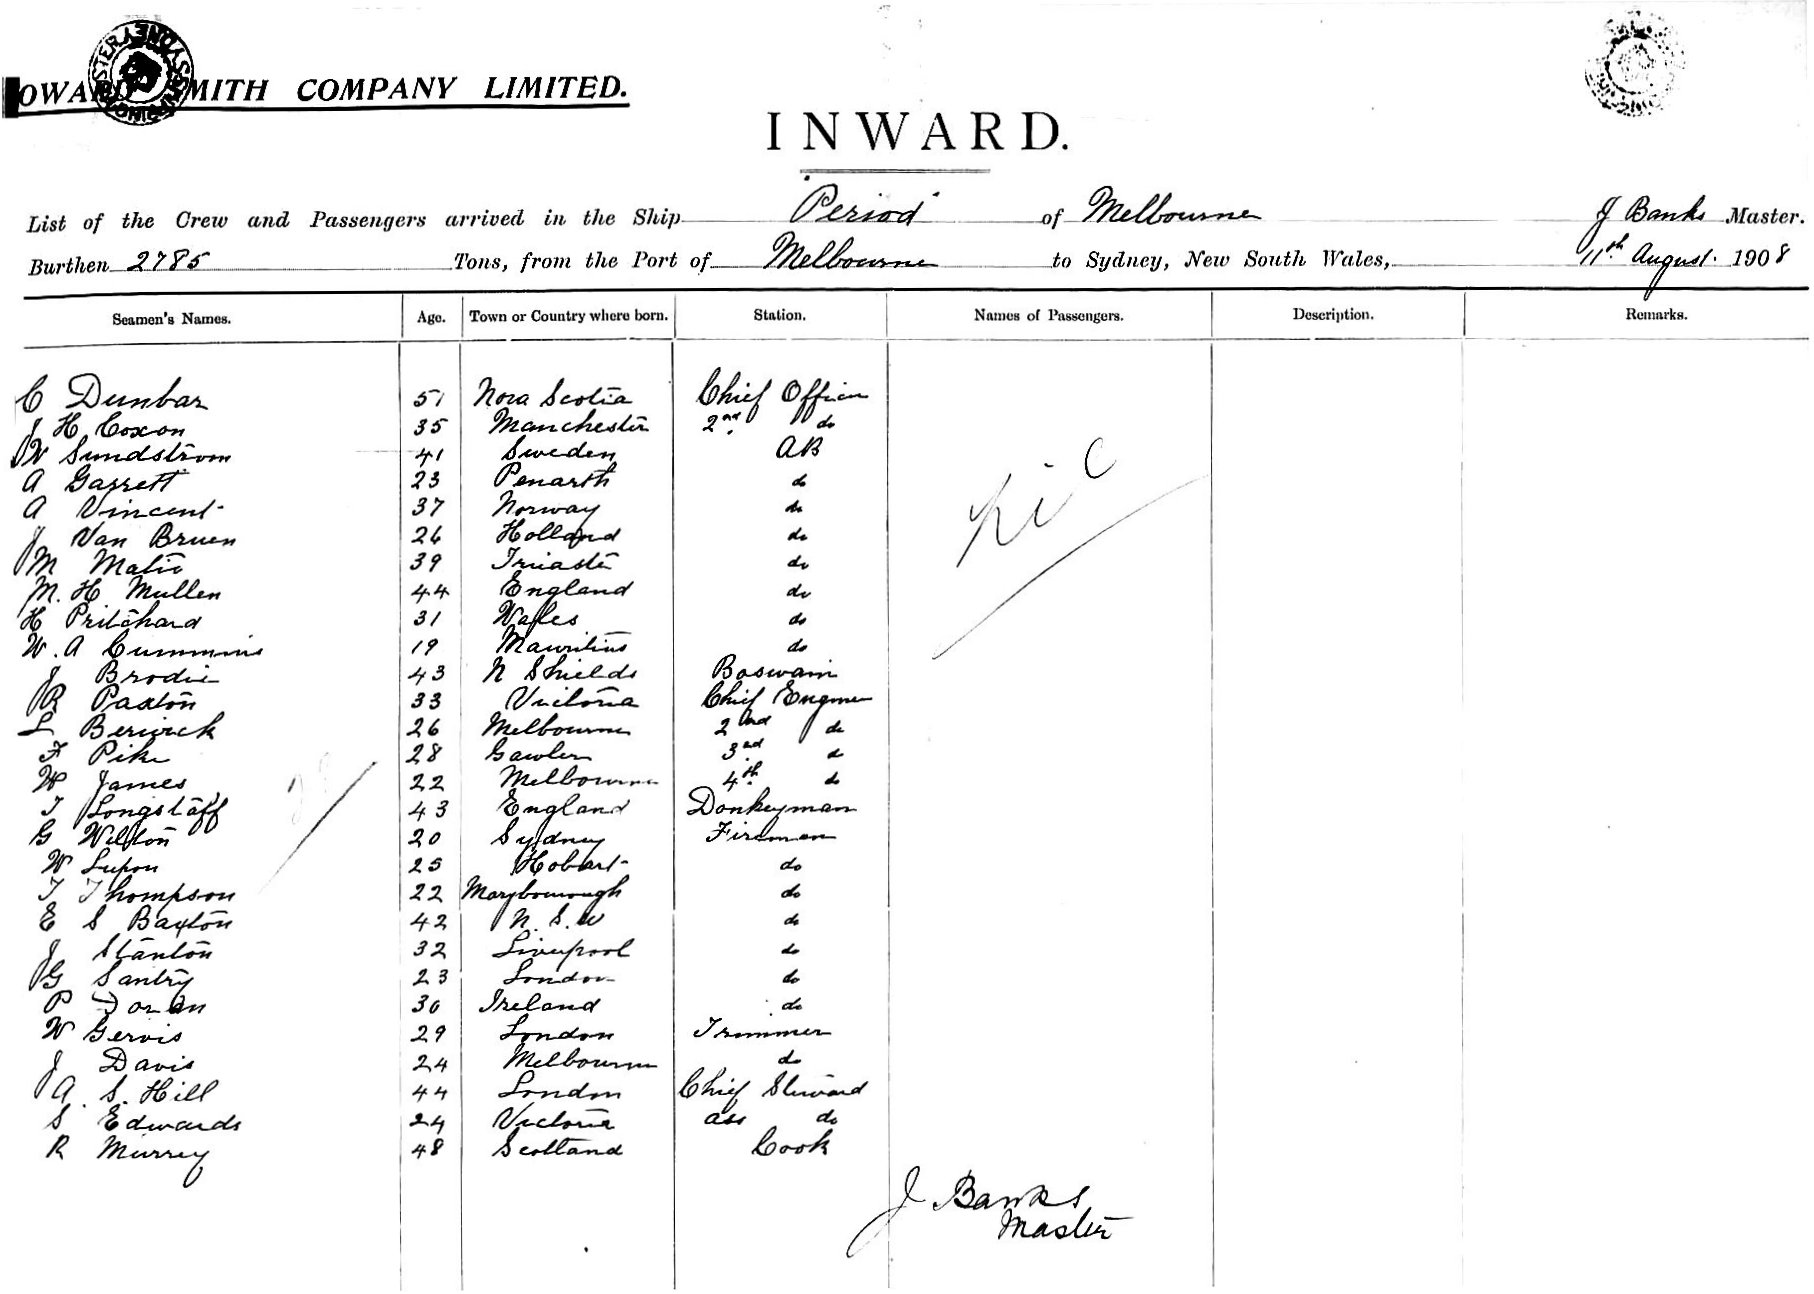 OWARD SMITH COMPANY LIMITED.
INWARD.
List of the Crew and Passengers arrived in the Ship "Period" of Melbourne J Banks Master.
Burthen 2785 Tons, from the Port of Melbourne to Sydney, New South Wales, 11th August. 1908
Seamen's Names. Age. Town or Country where born. Station. Names of Passengers. Description. Remarks.
C Dunbar 51 Nova Scotia Chief Officer
J H Coxon 35 Manchester 2nd do
W Sundstrom 41 Sweden AB
A Garrett 23 Penarth do
A Vincent 37 Norway do
J Van Bruen 26 Holland do
M Matic 39 Trieste do
M. H Mullen 44 England do
H Pritchard 31 Wales do
W. A Cummins 19 Mauritius do
J Brodie 43 N Shields Boswain
R Paxton 33 Victoria Chief Engineer
L Berwick 26 Melbourne 2nd do
F Pike 28 Gawler 3rd do
W James 22 Melbourne 4th do
T Longstaff 43 England Donkeyman
G Wilton 20 Sydney Fireman
W 25 Hobart do
T Thompson 22 Maryborough do
E S Baxton 42 N. S. W do
J Stanton 32 Liverpool do
G Santry 23 London do
P Doran 30 Ireland do
W Gervis 29 London Trimmer
J Davis 24 Melbourne do
A. S. Hill 44 London Chief Steward
S Edwards 24 Victoria ass do
R Murrey 48 Scotland Cook
J Banks
Master